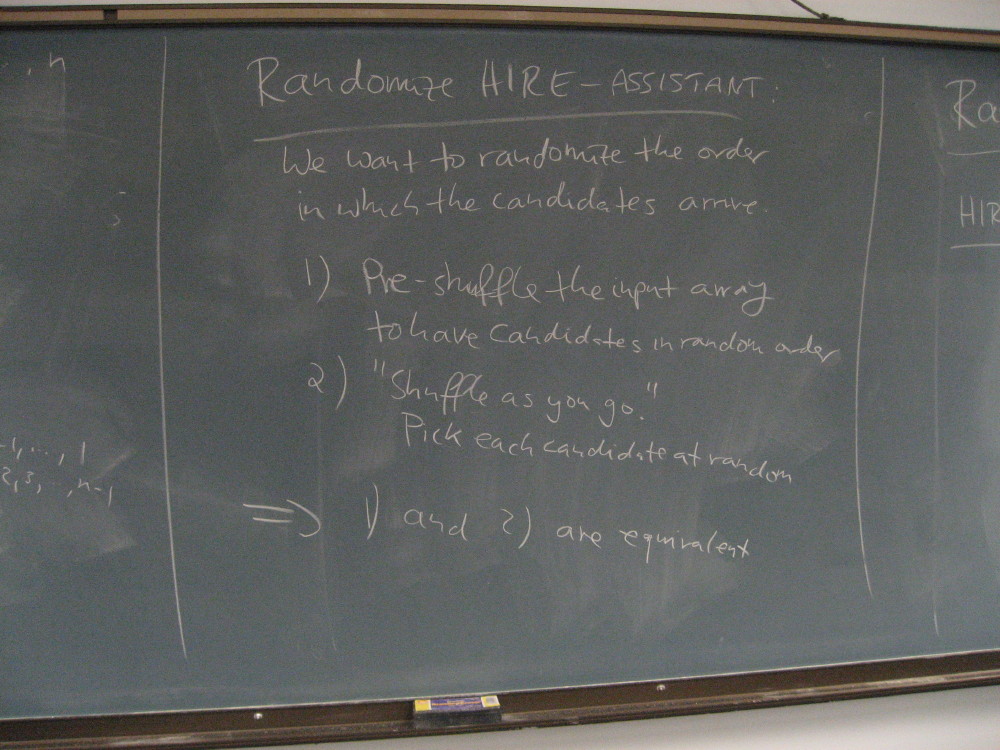 , n
-1, ..., 1
2, 3, .., n-1
Randomize HIRE-ASSISTANT:
We want to randomize the order
in which the candidates arrive.
1) Pre-shuffle the input array
to have candidates in random order
2) "Shuffle as you go."
Pick each candidate at random
=> 1) and 2) are equivalent
Ra
HIR